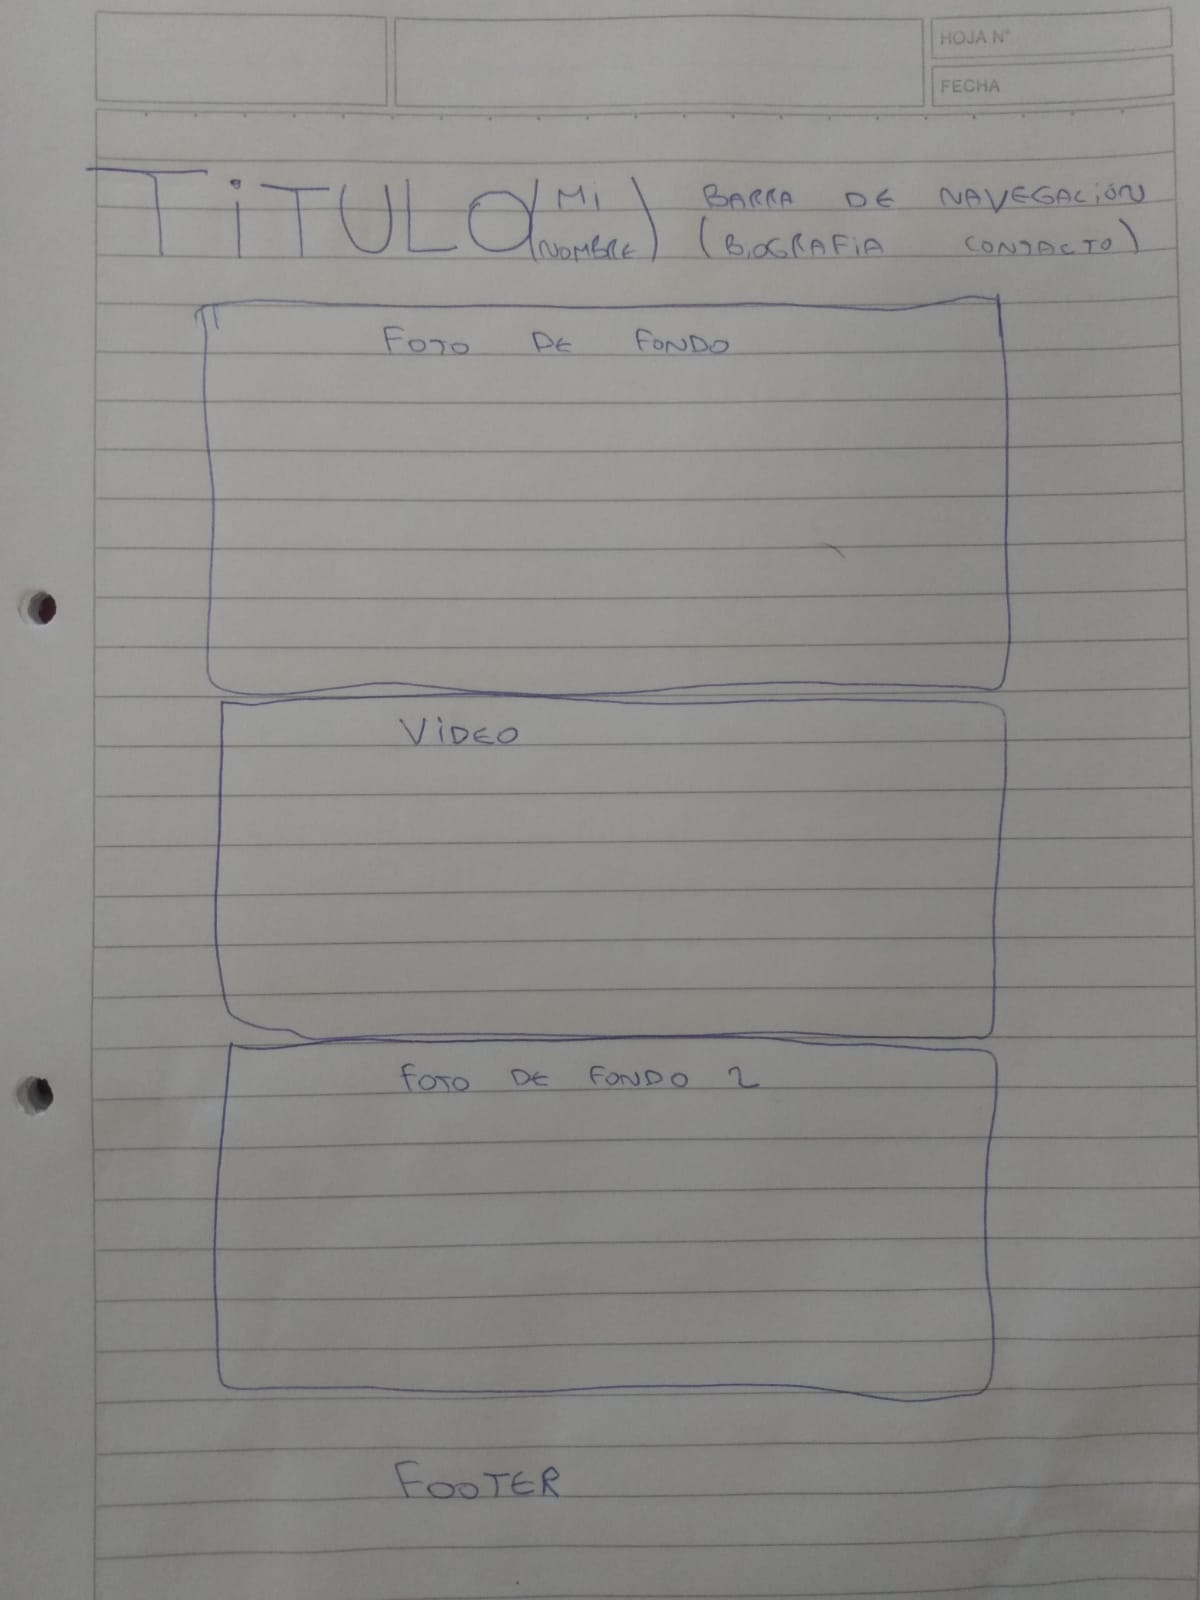 HOJA N°
FECHA
TiTULO (Mi NOMBRE) BARRA DE NAVEGACIÓN
(BIOGRAFIA CONTACTO)
FOTO DE FONDO
ViDEO
FOTO DE FONDO 2
FOOTER